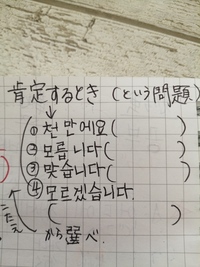 肯定するとき (という問題)
① 천만에요 (　　　)
② 모릅니다 (　　　)
③ 맞습니다 (　　　)
④ 모르겠습니다.
(　　　)
から選べ.
こたえ